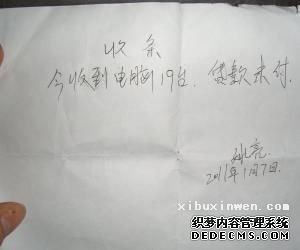 收条
今收到电脑19台，贷款未付.
孙亮
2011年1月7日.
xibuxinwen.com
织梦内容管理系统
DEDECMS.COM